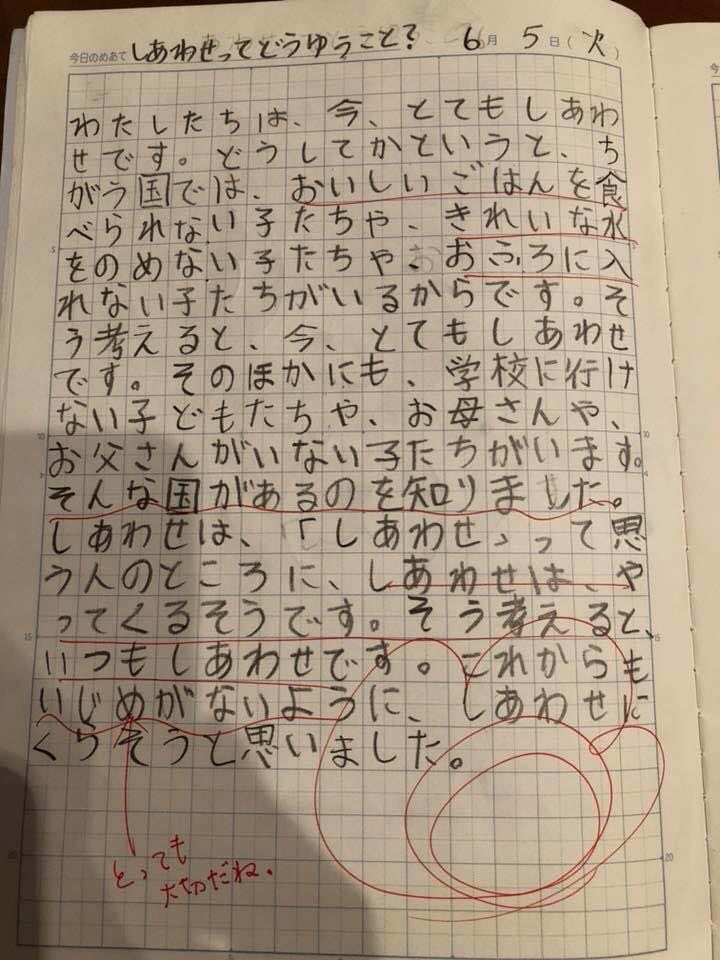 今日のめあて しあわせってどうゆうこと? 6月 5日(火)
わたしたちは、今、とてもしあわ
せです。どうしてかというと、ち
がう国では、おいしいごはんを食
べられない子たちゃ、きれいな水
をのめない子たちゃ、おふろに入
れない子たちがいるからです。そ
う考えると、今、とてもしあわせ
です。そのほかにも、学校に行け
ない子どもたちゃ、お母さんや、
お父さんがいない子たちがいます。
そんな国があるのを知りました。
しあわせは、「しあわせ、って思
う人のところに、しあわせは、や
ってくるそうです。そう考えると、
いつもしあわせです。これからも
いじめがないように、しあわせに
くらそうと思いました。
とっても
大切だね.
5
10
10
15
15
20
20